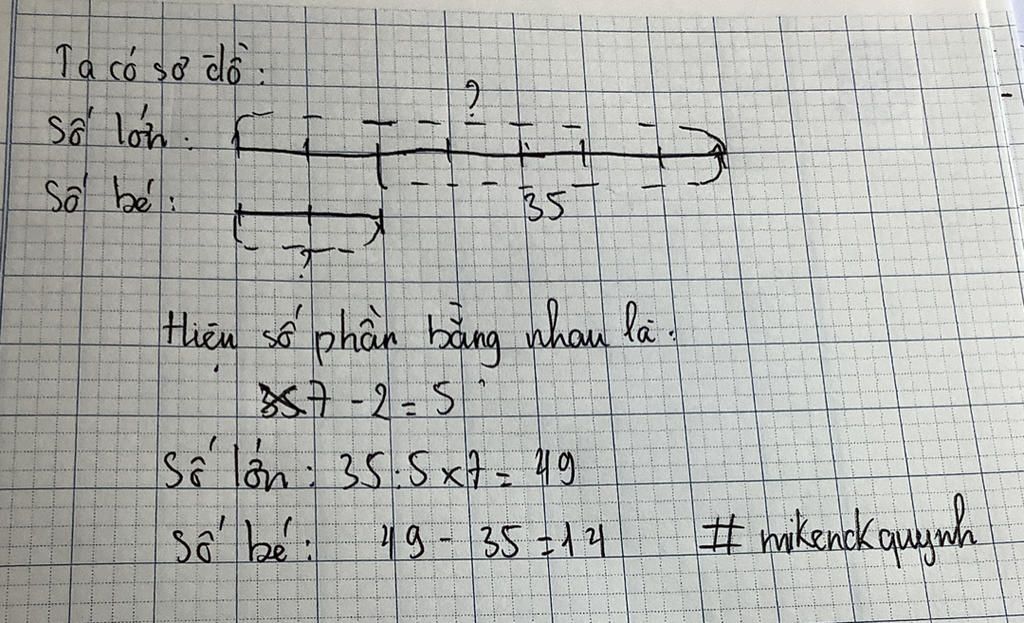 Ta có sơ đồ:
?
Số lớn:
35
Số bé:
?
Hiệu số phần bằng nhau là:
7 - 2 = 5
Số lớn: 35:5 x 7 = 49
Số bé: 49 - 35 = 14 # mikenckquynh